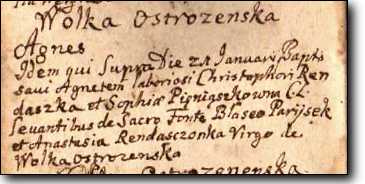 Wolka Ostrozenska
Agnes
Idem qui Supra Die 21 Januarÿ Bapti
savi Agnetem laboriosi Christophori Ren
daszka et Sophiæ Pipniaszkowna CL
levantibus de Sacro Fonte Blaseo Parÿsek
et Anastasia Rendasczonka Virgo de
Wolka Ostrozenska
Ostrozenska